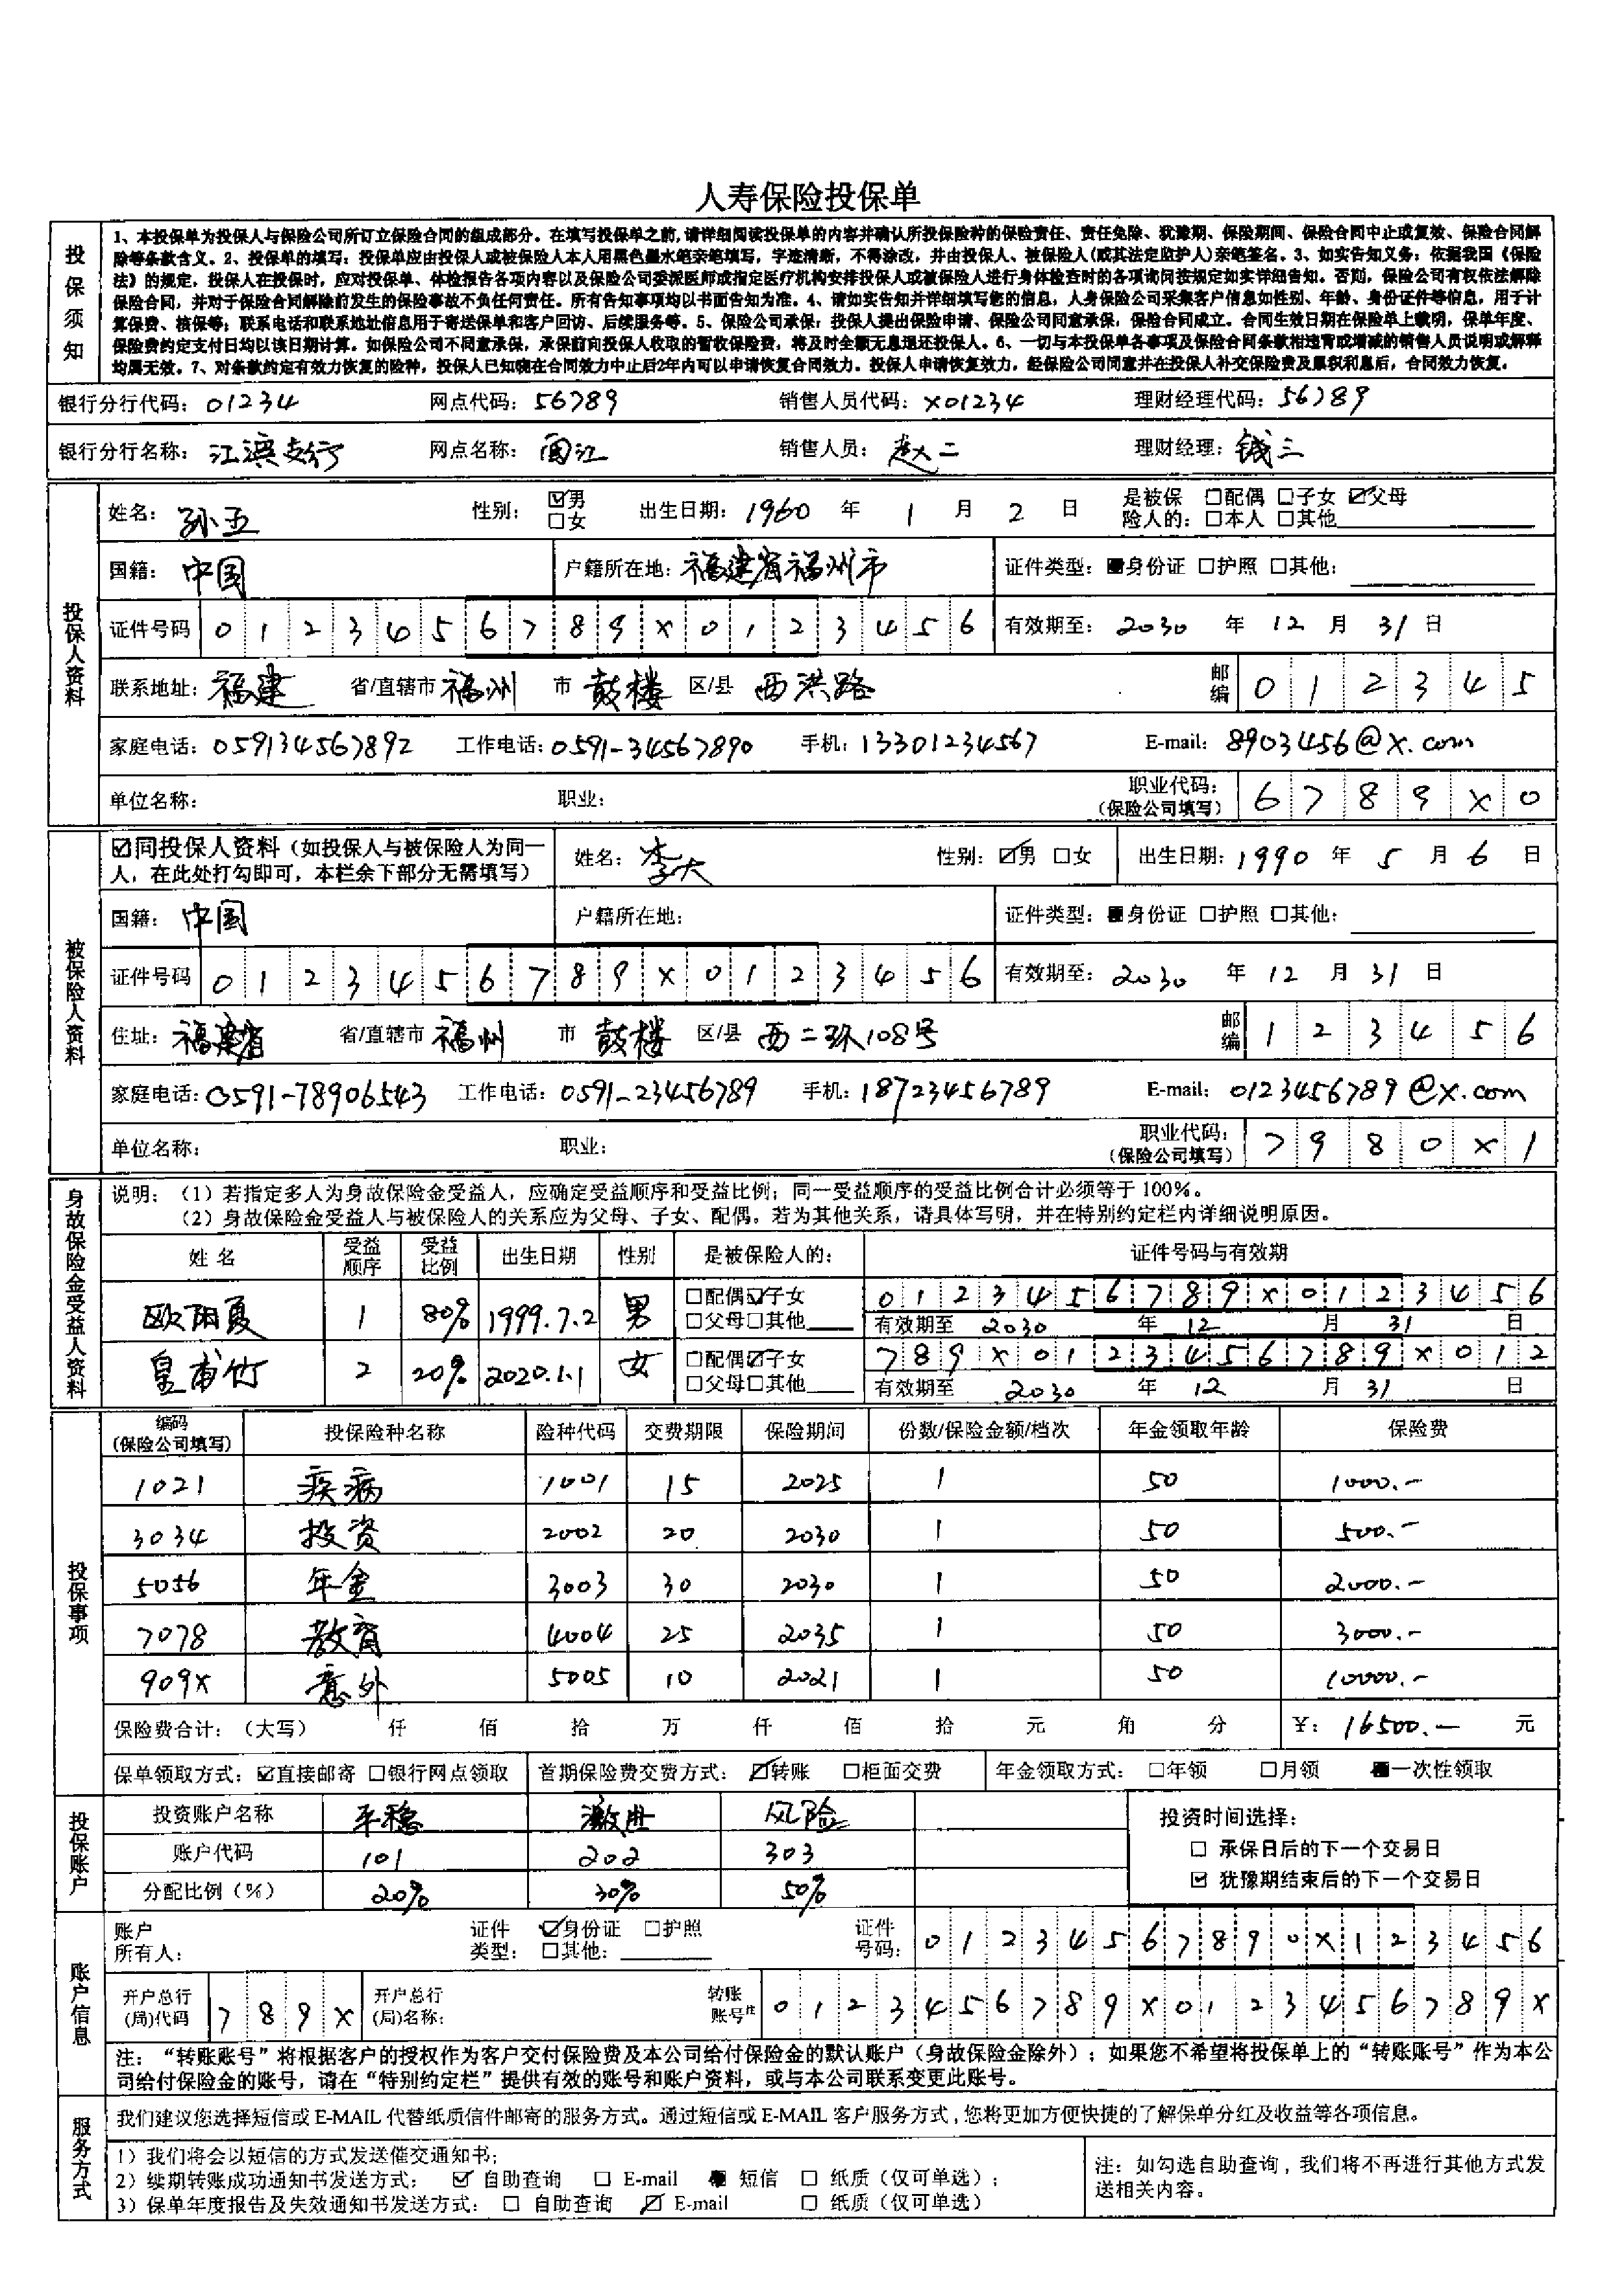 人寿保险投保单
投保须知
1、本投保单为投保人与保险公司所订立保险合同的组成部分。在填写投保单之前,请详细阅读投保单的内容并确认所投保险种的保险责任、责任免除、犹豫期、保险期间、保险合同中止或复效、保险合同解
除等条款含义。2、投保单的填写：投保单应由投保人或被保险人本人用黑色墨水笔亲笔填写，字迹清晰，不得涂改，并由投保人、被保险人(或其法定监护人)亲笔签名。3、如实告知义务：依据我国《保险
法》的规定，投保人在投保时，应对投保单、体检报告各项内容以及保险公司委派医师或指定医疗机构安排投保人或被保险人进行身体检查时的各项询问按规定如实详细告知。否则，保险公司有权依法解除
保险合同，并对于保险合同解除前发生的保险事故不负任何责任。所有告知事项均以书面告知为准。4、请如实告知并详细填写您的信息，人身保险公司采集客户信息如性别、年龄、身份证件等信息，用于计
算保费、核保等；联系电话和联系地址信息用于寄送保单和客户回访、后续服务等。5、保险公司承保：投保人提出保险申请、保险公司同意承保，保险合同成立。合同生效日期在保险单上载明，保单年度、
保险费约定支付日均以该日期计算。如保险公司不同意承保，承保前向投保人收取的暂收保险费，将及时全额无息退还投保人。6、一切与本投保单各事项及保险合同条款相违背或增减的销售人员说明或解释
均属无效。7、对条款约定有效力恢复的险种，投保人已知晓在合同效力中止后2年内可以申请恢复合同效力。投保人申请恢复效力，经保险公司同意并在投保人补交保险费及累积利息后，合同效力恢复。
银行分行代码：01234 网点代码：56789 销售人员代码：X01234 理财经理代码：56789
银行分行名称：江滨支行 网点名称：闽江 销售人员：赵二 理财经理：钱三
投保人资料
姓名：孙五 性别：☑男 □女 出生日期：1960 年 1 月 2 日 是被保险人的：□配偶 □子女 ☑父母 □本人 □其他
国籍：中国 户籍所在地：福建省福州市 证件类型：■身份证 □护照 □其他：
证件号码 0 1 2 3 4 5 6 7 8 9 X 0 1 2 3 4 5 6 有效期至：2030 年 12 月 31 日
联系地址：福建 省/直辖市 福州 市 鼓楼 区/县 西洪路 邮编 0 1 2 3 4 5
家庭电话：059134567892 工作电话：0591-34567890 手机：13301234567 E-mail：8903456@x.com
单位名称： 职业： 职业代码：（保险公司填写） 6 7 8 9 X 0
被保险人资料
☑同投保人资料（如投保人与被保险人为同一
人，在此处打勾即可，本栏余下部分无需填写） 姓名：李大 性别：☑男 □女 出生日期：1990 年 5 月 6 日
国籍：中国 户籍所在地： 证件类型：■身份证 □护照 □其他：
证件号码 0 1 2 3 4 5 6 7 8 9 X 0 1 2 3 4 5 6 有效期至：2030 年 12 月 31 日
住址：福建省 省/直辖市 福州 市 鼓楼 区/县 西二环108号 邮编 1 2 3 4 5 6
家庭电话：0591-78906543 工作电话：0591-23456789 手机：18723456789 E-mail：0123456789@x.com
单位名称： 职业： 职业代码：（保险公司填写） 7 9 8 0 X 1
身故保险金受益人资料
说明：（1）若指定多人为身故保险金受益人，应确定受益顺序和受益比例；同一受益顺序的受益比例合计必须等于100%。
（2）身故保险金受益人与被保险人的关系应为父母、子女、配偶。若为其他关系，请具体写明，并在特别约定栏内详细说明原因。
姓 名 受益顺序 受益比例 出生日期 性别 是被保险人的： 证件号码与有效期
欧阳夏 1 80% 1999.7.2 男 □配偶☑子女 □父母□其他 0 1 2 3 4 5 6 7 8 9 X 0 1 2 3 4 5 6
有效期至 2030 年 12 月 31 日
皇甫竹 2 20% 2020.1.1 女 □配偶☑子女 □父母□其他 7 8 9 X 0 1 2 3 4 5 6 7 8 9 X 0 1 2
有效期至 2030 年 12 月 31 日
投保事项
编码（保险公司填写） 投保险种名称 险种代码 交费期限 保险期间 份数/保险金额/档次 年金领取年龄 保险费
1021 疾病 1001 15 2025 1 50 1000.-
3034 投资 2002 20 2030 1 50 500.-
5056 年金 3003 30 2030 1 50 2000.-
7078 教育 4004 25 2035 1 50 3000.-
909X 意外 5005 10 2021 1 50 10000.-
保险费合计：（大写） 仟 佰 拾 万 仟 佰 拾 元 角 分 ￥：16500.- 元
保单领取方式：☑直接邮寄 □银行网点领取 首期保险费交费方式：☑转账 □柜面交费 年金领取方式：□年领 □月领 ■一次性领取
投保账户
投资账户名称 平稳 激进 风险
账户代码 101 202 303
分配比例（%） 20% 30% 50%
投资时间选择：
□ 承保日后的下一个交易日
☑ 犹豫期结束后的下一个交易日
账户信息
账户所有人： 证件类型：☑身份证 □护照 □其他： 证件号码：0 1 2 3 4 5 6 7 8 9 0 X 1 2 3 4 5 6
开户总行(局)代码 7 8 9 X 开户总行(局)名称： 转账账号注 0 1 2 3 4 5 6 7 8 9 X 0 1 2 3 4 5 6 7 8 9 X
注：“转账账号”将根据客户的授权作为客户交付保险费及本公司给付保险金的默认账户（身故保险金除外）；如果您不希望将投保单上的“转账账号”作为本公
司给付保险金的账号，请在“特别约定栏”提供有效的账号和账户资料，或与本公司联系变更此账号。
服务方式
我们建议您选择短信或 E-MAIL 代替纸质信件邮寄的服务方式。通过短信或 E-MAIL 客户服务方式，您将更加方便快捷的了解保单分红及收益等各项信息。
1）我们将会以短信的方式发送催交通知书；
2）续期转账成功通知书发送方式：☑ 自助查询 □ E-mail ■ 短信 □ 纸质（仅可单选）；
3）保单年度报告及失效通知书发送方式：□ 自助查询 ☑ E-mail □ 纸质（仅可单选）
注：如勾选自助查询，我们将不再进行其他方式发
送相关内容。